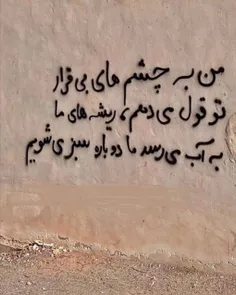 من به چشم های بی قرار
تو قول می دهم، ریشه های ما
به آب می رسد ما دوباره سبز می شویم